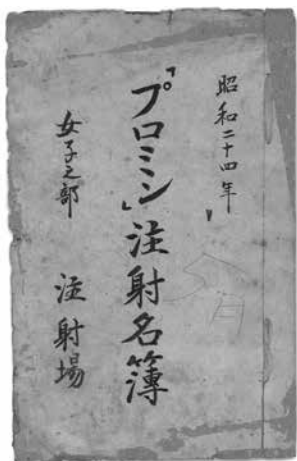 昭和二十四年
「プロミン」注射名簿
女子之部 注射場